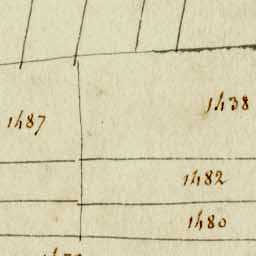 1438
1487
1482
1480